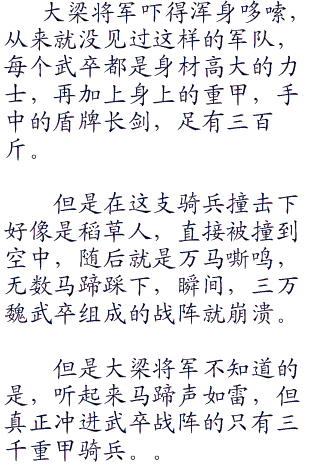 大梁将军吓得浑身哆嗦，
从来就没见过这样的军队，
每个武卒都是身材高大的力
士，再加上身上的重甲，手
中的盾牌长剑，足有三百
斤。
但是在这支骑兵撞击下
好像是稻草人，直接被撞到
空中，随后就是万马嘶鸣，
无数马蹄踩下，瞬间，三万
魏武卒组成的战阵就崩溃。
但是大梁将军不知道的
是，听起来马蹄声如雷，但
真正冲进武卒战阵的只有三
千重甲骑兵。。